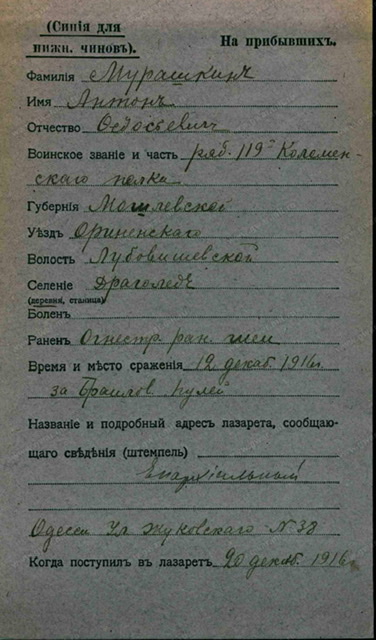 (Синія для
нижн. чиновъ).
На прибывшихъ.
Фамилія Мурашкинъ
Имя Антонъ
Отчество Федосьевич
Воинское званіе и часть ряд. 119го Коломен-
скаго полка
Губернія Могилевской
Уѣздъ
Волость Лубовишевской
Селеніе Драголедъ
(деревня, станица)
Боленъ
Раненъ Огнестр. ран. шеи
Время и мѣсто сраженія 12 декаб. 1916г.
за Браилов. пулей
Названіе и подробный адресъ лазарета, сообщаю-
щаго свѣдѣнія (штемпель)
Епархіальный
Одесса Ул Жуковскаго N 38
Когда поступилъ въ лазаретъ 20 декаб. 1916г.